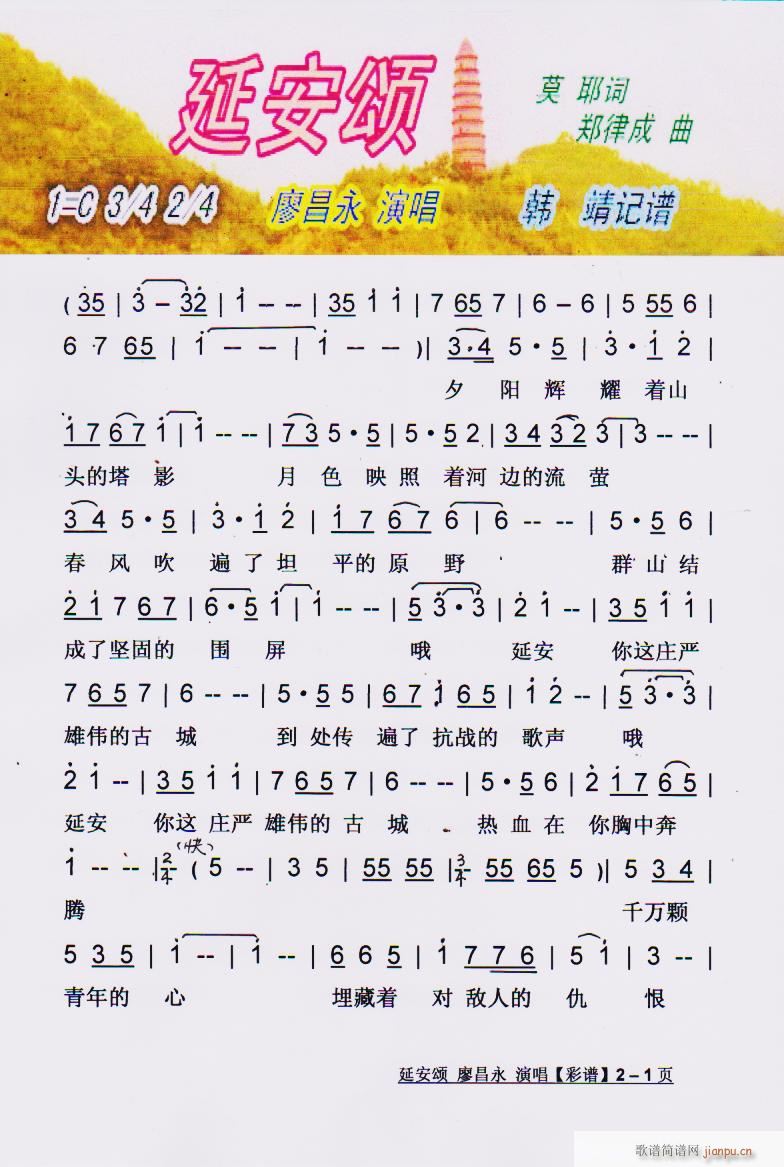 延安颂
莫 耶词
郑律成 曲
1=C 3/4 2/4 廖昌永 演唱 韩 靖记谱
( 35 | 3 – 32 | 1 – – | 35 1 1 | 7 65 7 | 6 – 6 | 5 55 6 |
6 7 65 | 1 – – | 1 – – )| 3·4 5·5 | 3·1 2 |
夕 阳 辉 耀 着山
1 7 67 1 | 1 -- -- | 73 5·5 | 5·5 2 | 34 32 3 | 3 -- -- |
头的塔 影 月 色 映 照 着河 边的流 萤
34 5·5 | 3·1 2 | 17 67 6 | 6 -- -- | 5·5 6 |
春 风 吹 遍 了 坦 平的 原 野 群 山 结
21 7 67 | 6·5 1 | 1 -- -- | 5 3·3 | 2 1 -- | 35 1 1 |
成了坚固的 围 屏 哦 延安 你这庄严
7 65 7 | 6 -- -- | 5·5 5 | 67 1 65 | 1 2 -- | 5 3·3 |
雄伟的古 城 到 处传 遍了 抗战的 歌声 哦
2 1 -- | 35 1 1 | 7 65 7 | 6 -- -- | 5·5 6 | 2 17 65 |
延安 你这 庄严 雄伟的 古 城 热 血 在 你胸中奔
(快)
1 -- -- |2/4 ( 5 -- | 3 5 | 55 55 |3/4 55 55 5 )| 5 34 |
腾 千万颗
5 35 | 1 -- | 1 -- | 6 65 | 1 776 | 5 1 | 3 -- |
青年的 心 埋藏着 对 敌人的 仇 恨
延安颂 廖昌永 演唱【彩谱】2－1页
歌谱简谱网
jianpu.cn